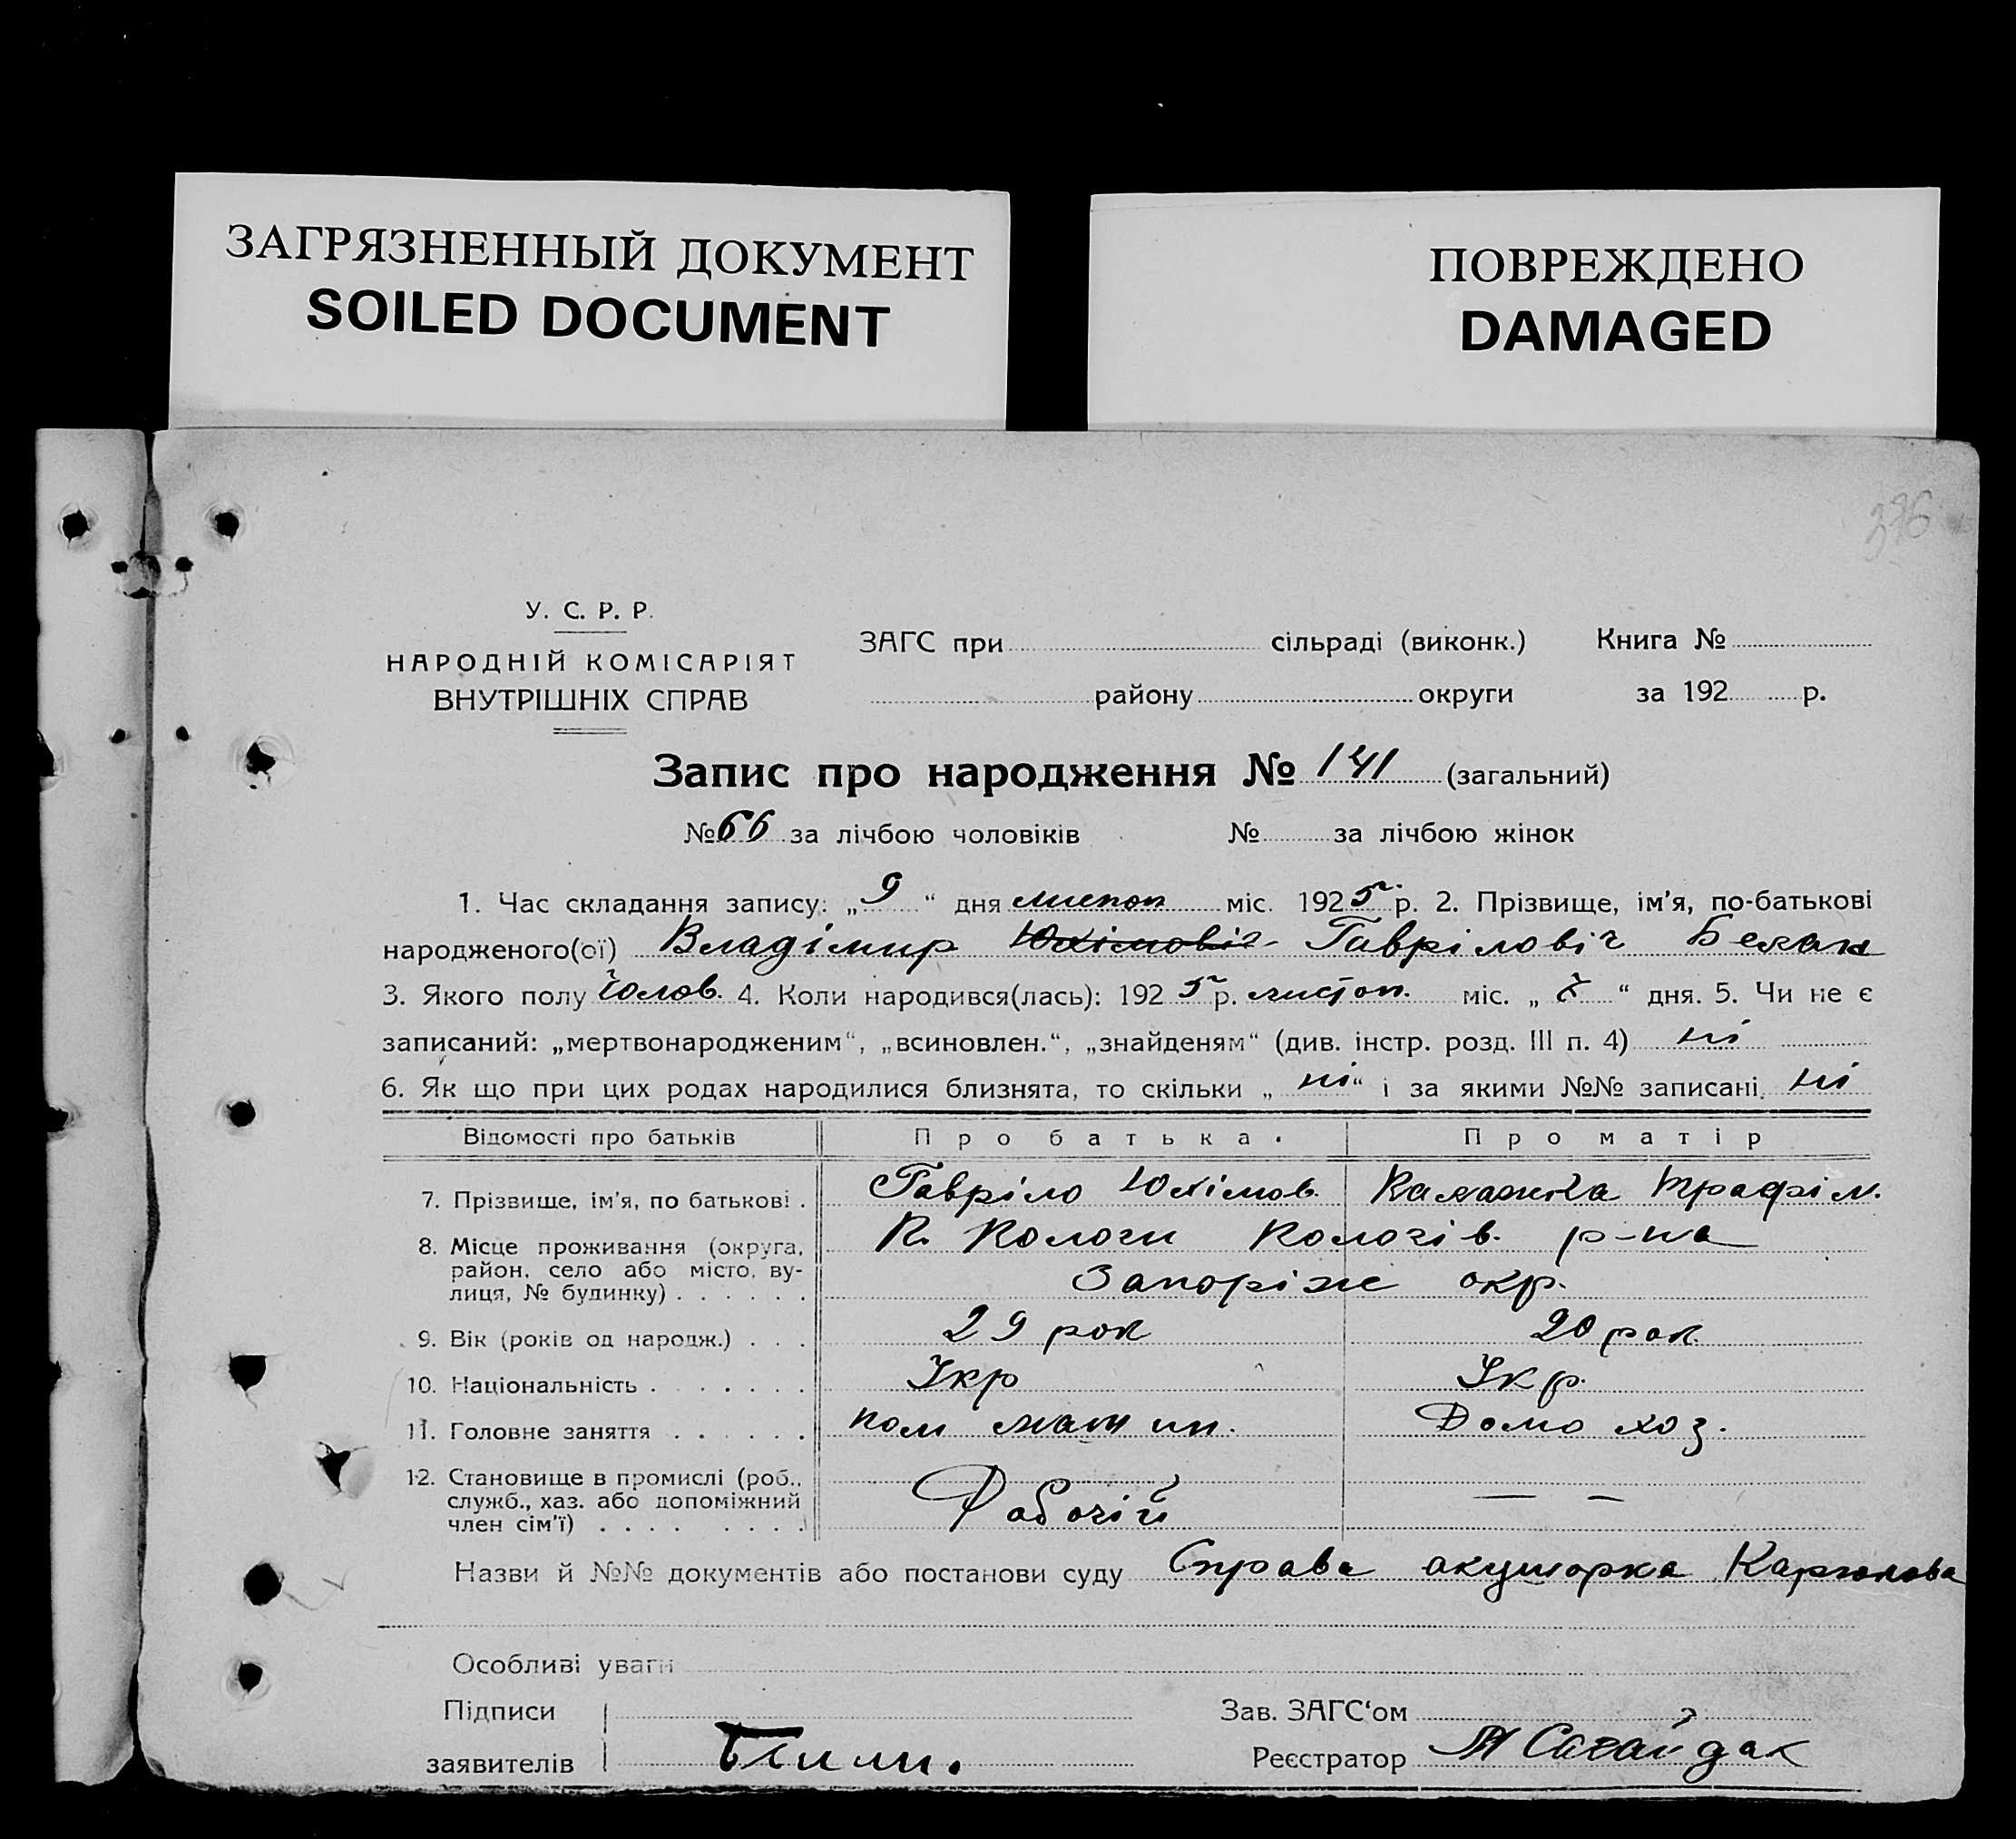 ЗАГРЯЗНЕННЫЙ ДОКУМЕНТ
SOILED DOCUMENT
ПОВРЕЖДЕНО
DAMAGED
376
У. С. Р. Р.
НАРОДНІЙ КОМІСАРІЯТ
ВНУТРІШНІХ СПРАВ
ЗАГС при сільраді (виконк.) Книга №
району округи за 192 р.
Запис про народження № 141 (загальний)
№ 66 за лічбою чоловіків № за лічбою жінок
1. Час складання запису: „9“ дня листоп міс. 1925 р. 2. Прізвище, ім'я, по-батькові
народженого(ої) Владімир Юхімовіч Гавріловіч
3. Якого полу Чолов. 4. Коли народився(лась): 1925 р. листоп. міс. „ “ дня. 5. Чи не є
записаний: „мертвонародженим“, „всиновлен.“, „знайденям“ (див. інстр. розд. III п. 4) ні
6. Як що при цих родах народилися близнята, то скільки „ні“ і за якими №№ записані ні
Відомості про батьків Про батька. Про матір
7. Прізвище, ім'я, по батькові . Гавріло Юхімов. Трафім.
8. Місце проживання (округа, район, село або місто, вулиця, № будинку) . . . . . . Пологи Пологів. р-на
Запоріж окр.
9. Вік (років од народж.) . . . 29 рок 20 рок.
10. Національність . . . . . . . Укр Укр.
11. Головне заняття . . . . . . пом машин. Домо хоз.
12. Становище в промислі (роб., служб., хаз. або допоміжний член сім'ї) . . . . . . . . Рабочій — —
Назви й №№ документів або постанови суду Справа акушорка
Особливі уваги
Підписи Зав. ЗАГС'ом
заявителів Реєстратор Сагайдак